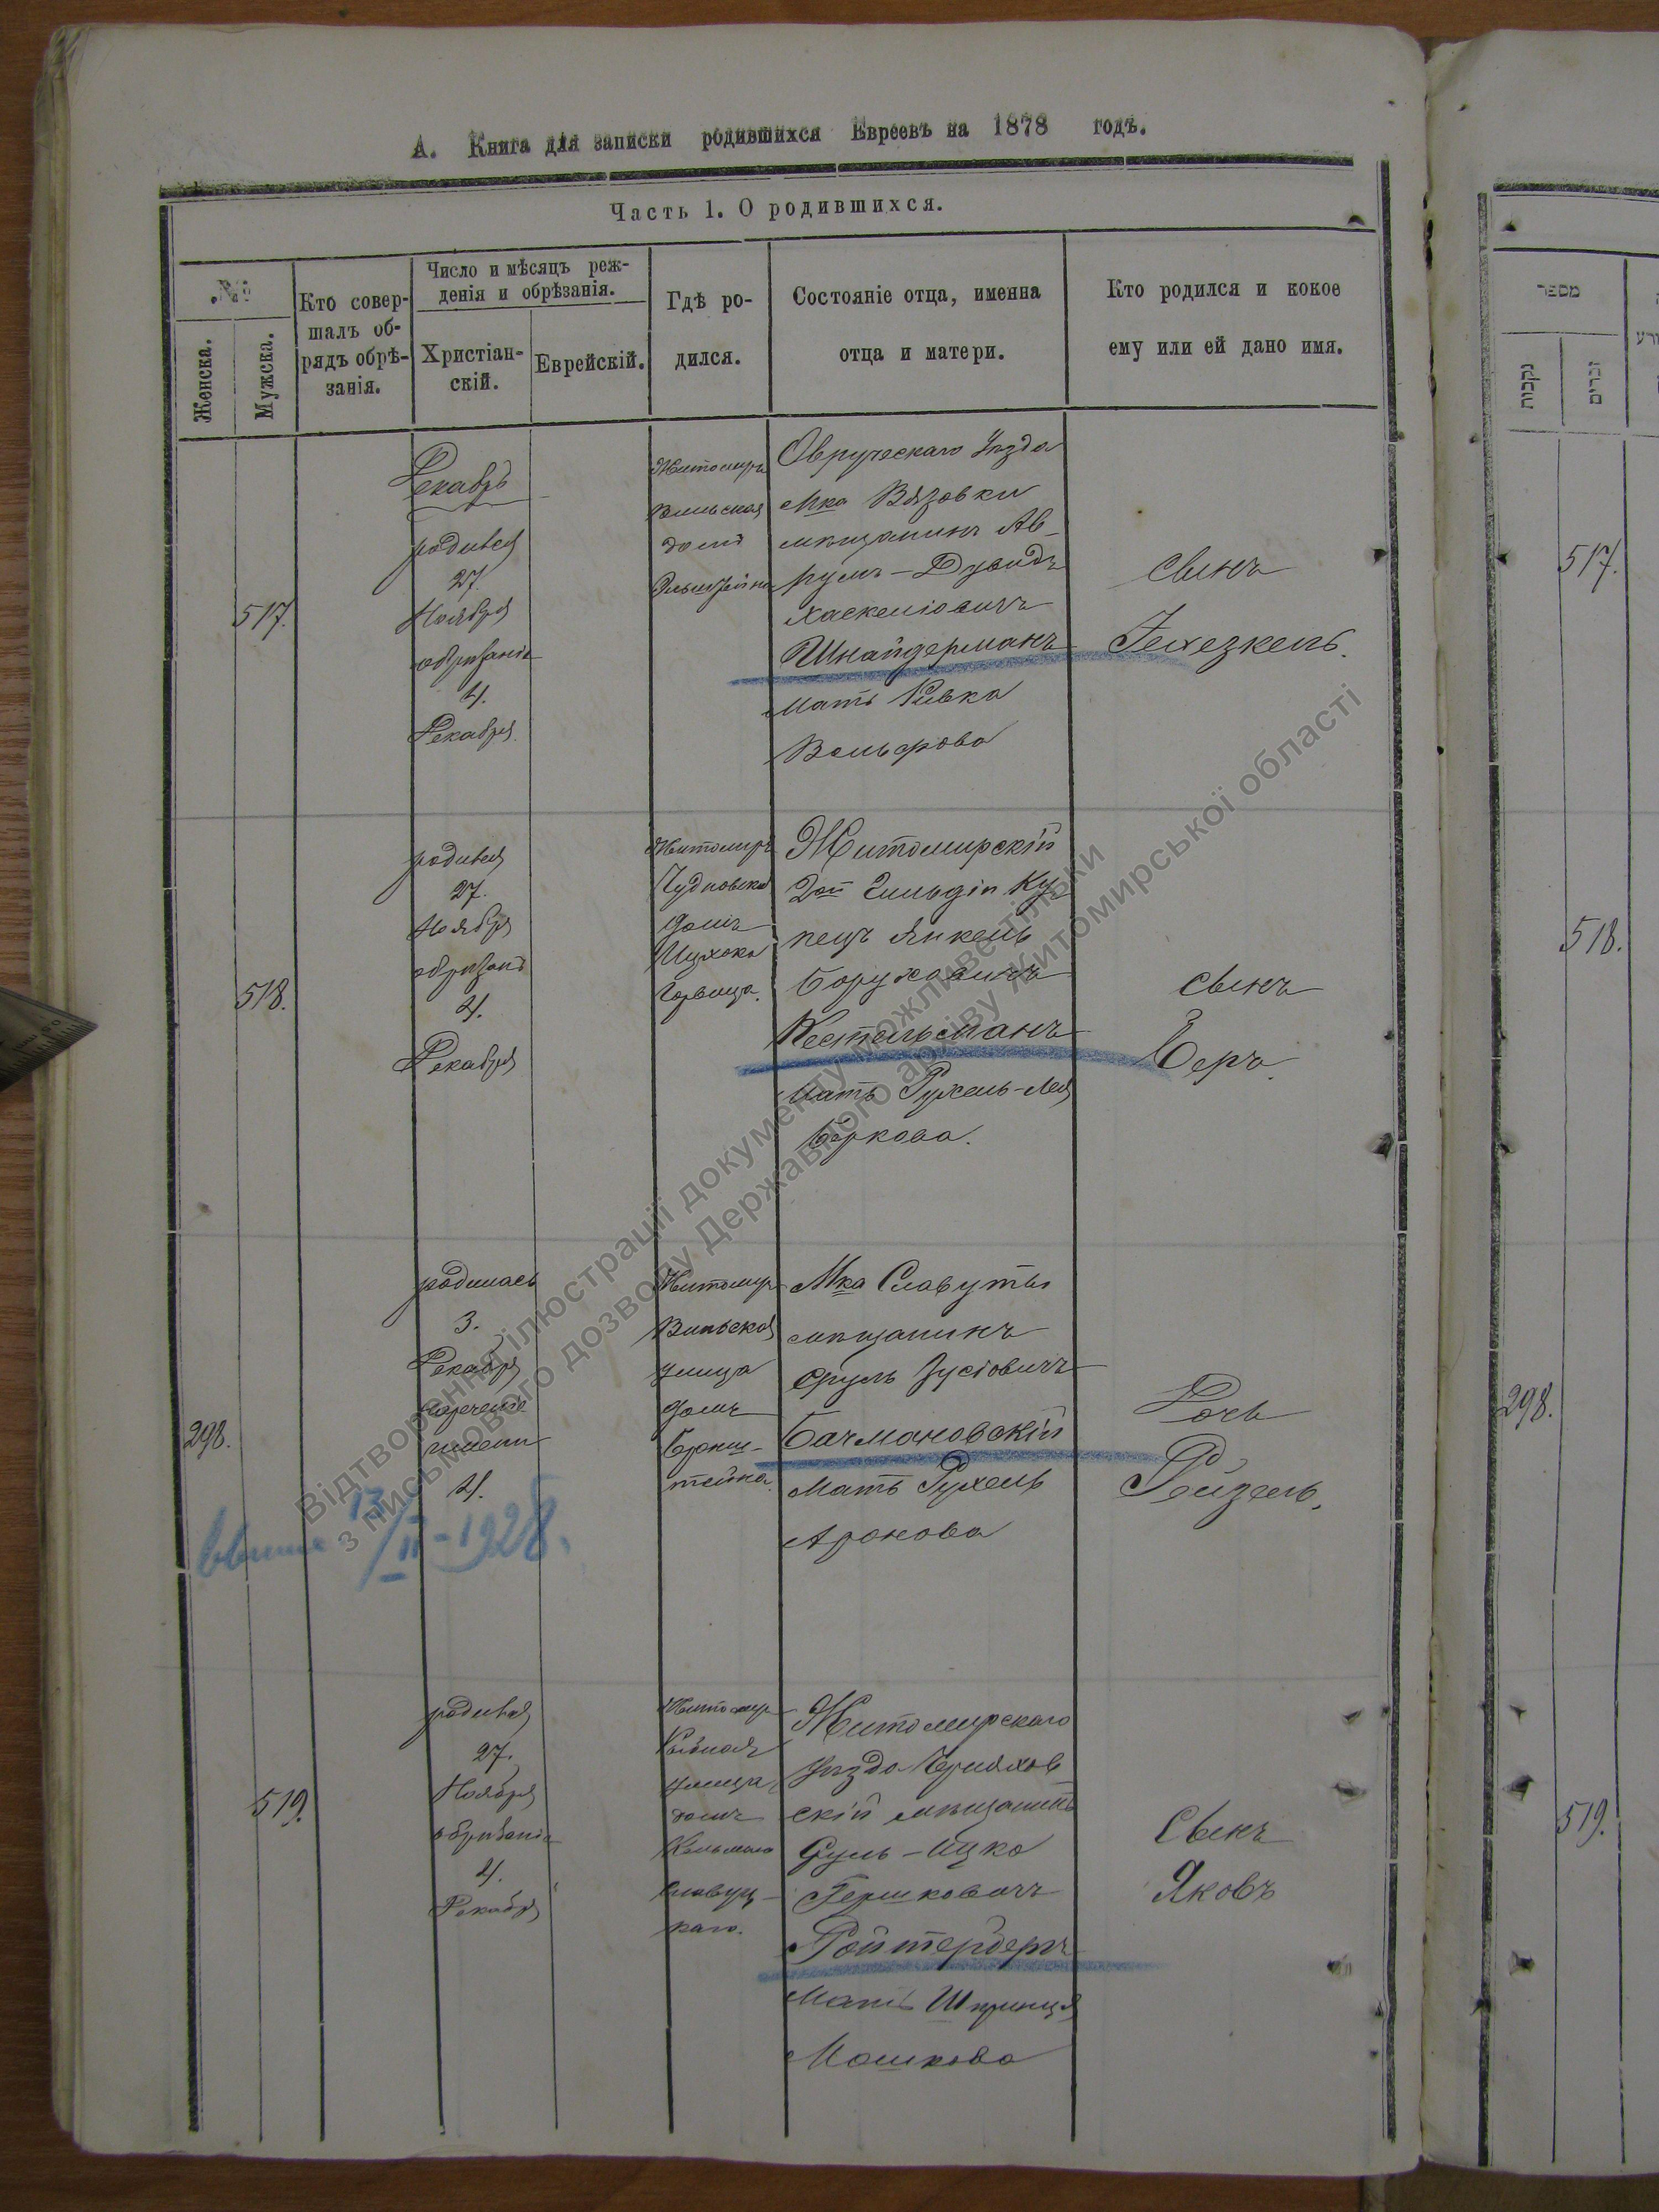 А. Книга для записки родившихся Евреевъ на 1878 годъ.
Часть 1. О родившихся.
№
Женска.
Мужска.
Кто совер-
шалъ об-
рядъ обрѣ-
занія.
Число и мѣсяцъ реж-
денія и обрѣзанія.
Христіан-
скій.
Еврейскій.
Гдѣ ро-
дился.
Состояніе отца, именна
отца и матери.
Кто родился и кокое
ему или ей дано имя.
517.
Декабрь
родився
27
Ноября
обрѣзаніе
4.
Декабря
Житомиръ
Вильская
домъ
Овручскаго Уѣзда
М-ка Вязовки
мѣщанинъ Ав-
румъ-Дувидъ
Хаскеліовичъ
Шнайдерманъ
Мать Ривка
Вольфова
сынъ
Іехезкель.
518.
родився
27.
Ноября
4.
Декабря
Житомиръ
Чудновская
домъ
Ицхока
Горвица.
Житомирскій
2ой Гильдіи Ку-
пецъ Янкель
Боруховичъ
Кестельманъ
Мать Рухель-Лея
Беркова.
сынъ
Беръ.
298.
родилась
3.
Декабря
нареченіе
имени
4.
Житомир
Вильская
улица
домъ
Бронш-
тейна.
М-ка Славуты
мѣщанинъ
Сруль Зусіовичъ
Бачмановскій
Мать Рухель
Аронова
Дочь
Рейзель.
13/II-1928.
519.
родився
27.
Ноября
обрѣзаніе
4.
Декабря
Житомир
Рыбная
улица
домъ
Славуц-
каго.
Житомирскаго
уѣзда Черняхов-
скій мѣщанинъ
Сруль-Ицко
Гершковичъ
Ройтерберъ
Мать Шпринця
Мошкова
Сынъ
Яковъ
מספר
נקבות
זכרים
517.
518.
298.
519.
Відтворення ілюстрації документу можливе тільки
з письмового дозволу Державного архіву Житомирської області